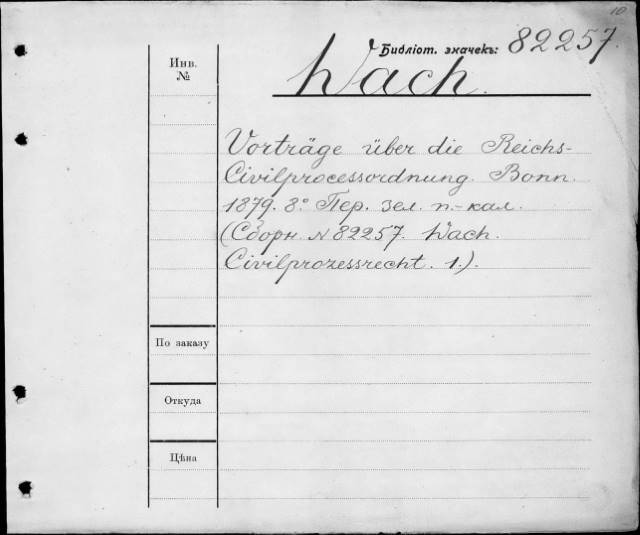 10
Библіот. значекъ: 82257.
Wach.
Инв.
№
Vorträge über die Reichs-
Civilprocessordnung. Bonn.
1879. 8° Пер. зел. п.-кал.
(Сборн. № 82257. Wach.
Civilprozessrecht. 1.).
По заказу
Откуда
Цѣна